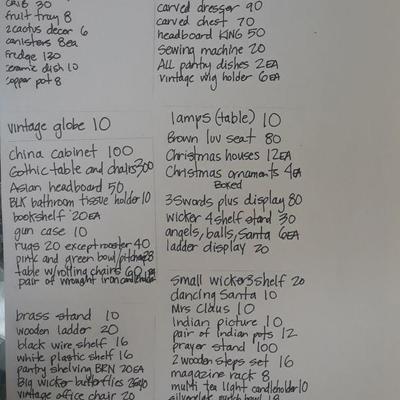 crib 30
fruit tray 8
2 cactus decor 6
canisters 8ea
Fredge 130
ceramic dish 10
copper pot 8
vintage globe 10
china cabinet 100
Gothic table and chairs 300
Asian headboard 50
BLK bathroom tissue holder 10
bookshelf 20EA
gun case 10
rugs 20 except rooster 40
pink and green bowl/pitcher 28
table w/rolling chairs 60
pair of wrought iron
brass stand 10
wooden ladder 20
black wire shelf 16
white plastic shelf 16
pantry shelving BRN 20EA
big wicker butterflies
vintage office chair 20
carved dresser 90
carved chest 70
headboard KING 50
sewing machine 20
ALL pantry dishes 2EA
vintage wig holder 6EA
lamps (table) 10
Brown luv seat 80
Christmas houses 12EA
Christmas ornaments 4EA
Boxed
3 Swords plus display 80
wicker 4 shelf stand 30
angels, balls, Santa 6EA
ladder display 20
small wicker 3 shelf 20
dancing Santa 10
Mrs Claus 10
Indian picture 10
pair of Indian pots 12
prayer stand 100
2 wooden steps set 16
magazine rack 8
multi tea light candleholder 10
silverplate punch bowl 18